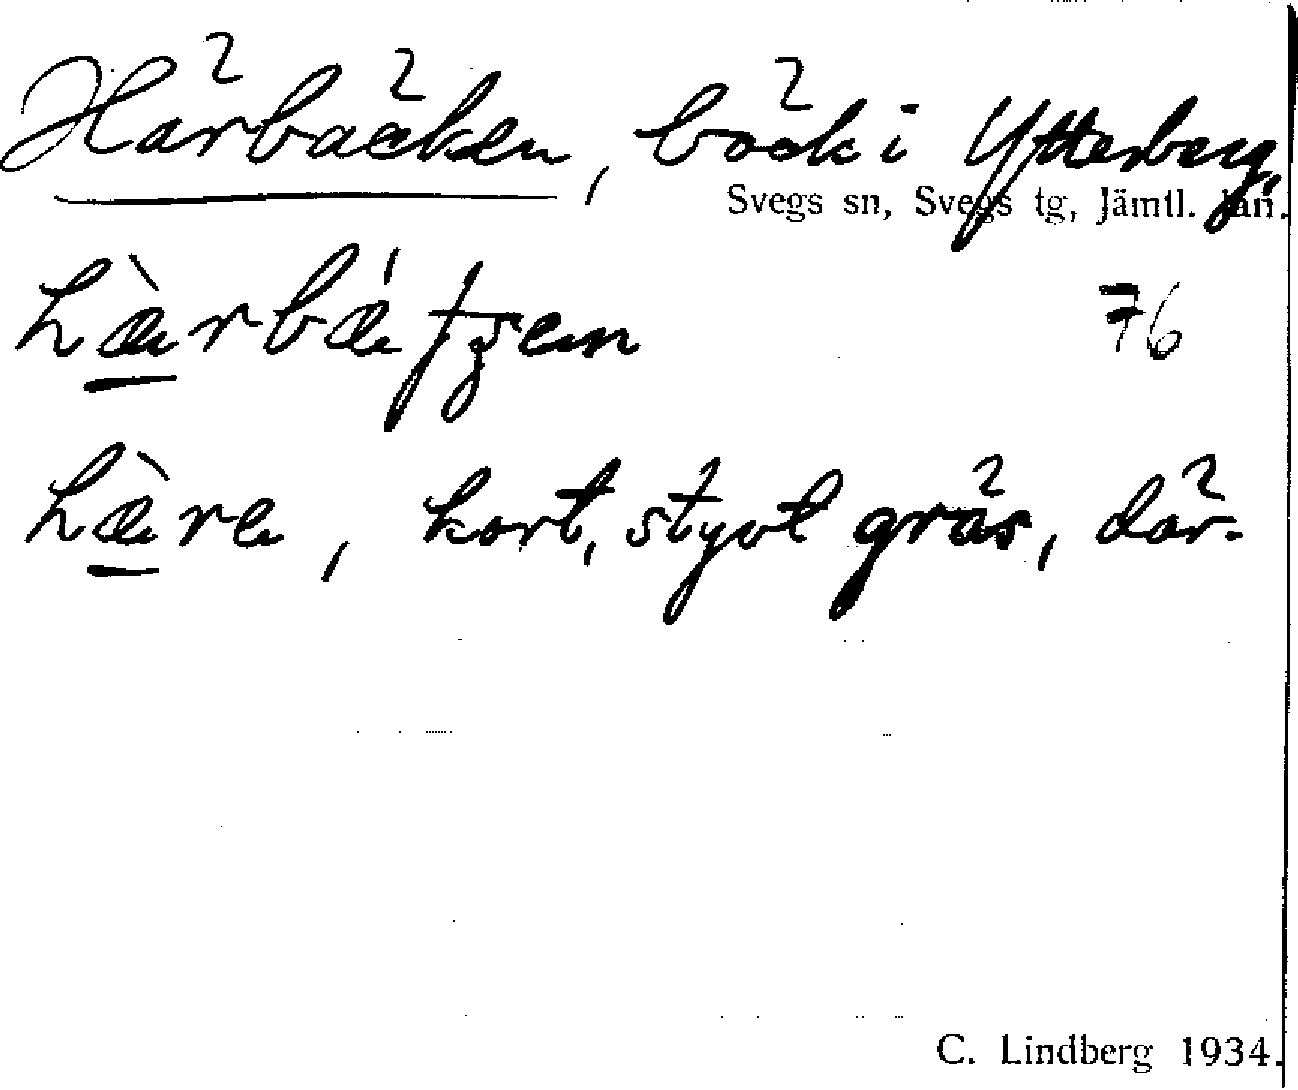 Härbäcken, bäck i Ytterberg,
Svegs sn, Svegs tg, Jämtl. län.
hæ̀rbǽtʃen
76
hæ̀re, kort, styvt gräs, där-
C. Lindberg 1934.